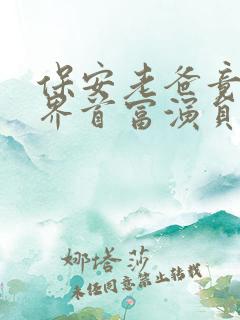 保安老爸竟
界首富演员
娜塔莎
未经同意禁止转载